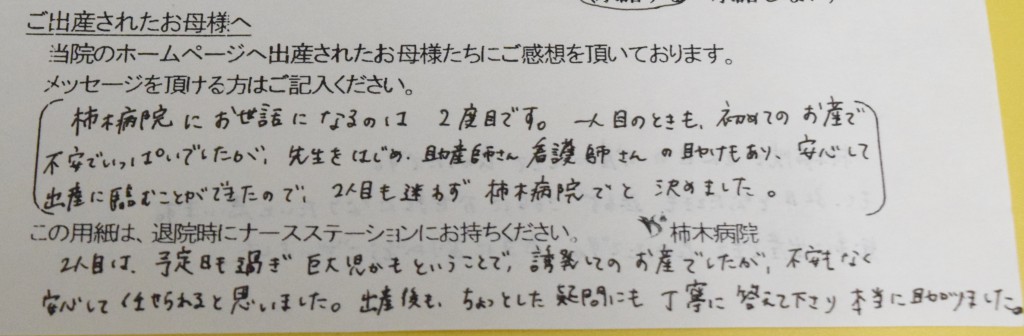 ご出産されたお母様へ
当院のホームページへ出産されたお母様たちにご感想を頂いております。
メッセージを頂ける方はご記入ください。
柿木病院にお世話になるのは2度目です。一人目のときも、初めてのお産で
不安でいっぱいでしたが、先生をはじめ、助産師さん看護師さんの助けもあり、安心して
出産に臨むことができたので、2人目も迷わず柿木病院でと決めました。
この用紙は、退院時にナースステーションにお持ちください。 柿木病院
2人目は、予定日も過ぎ巨大児かもということで、誘発してのお産でしたが、不安もなく
安心して任せられると思いました。出産後も、ちょっとした疑問にも丁寧に答えて下さり本当に助かりました。